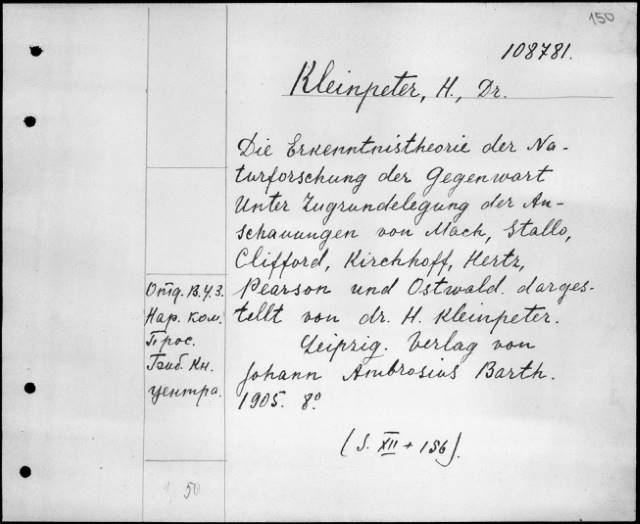 150
108781.
Kleinpeter, H., Dr.
Die Erkenntnistheorie der Na-
turforschung der Gegenwart
Unter Zugrundelegung der An-
schauungen von Mach, Stallo,
Clifford, Kirchhoff, Hertz,
Pearson und Ostwald darges-
tellt von dr. H. Kleinpeter.
Leipzig. Verlag von
Johann Ambrosius Barth.
1905. 8°
(S. XII + 156).
Отд. В.У.З.
Нар. ком.
Прос.
Кн.
центра.
50